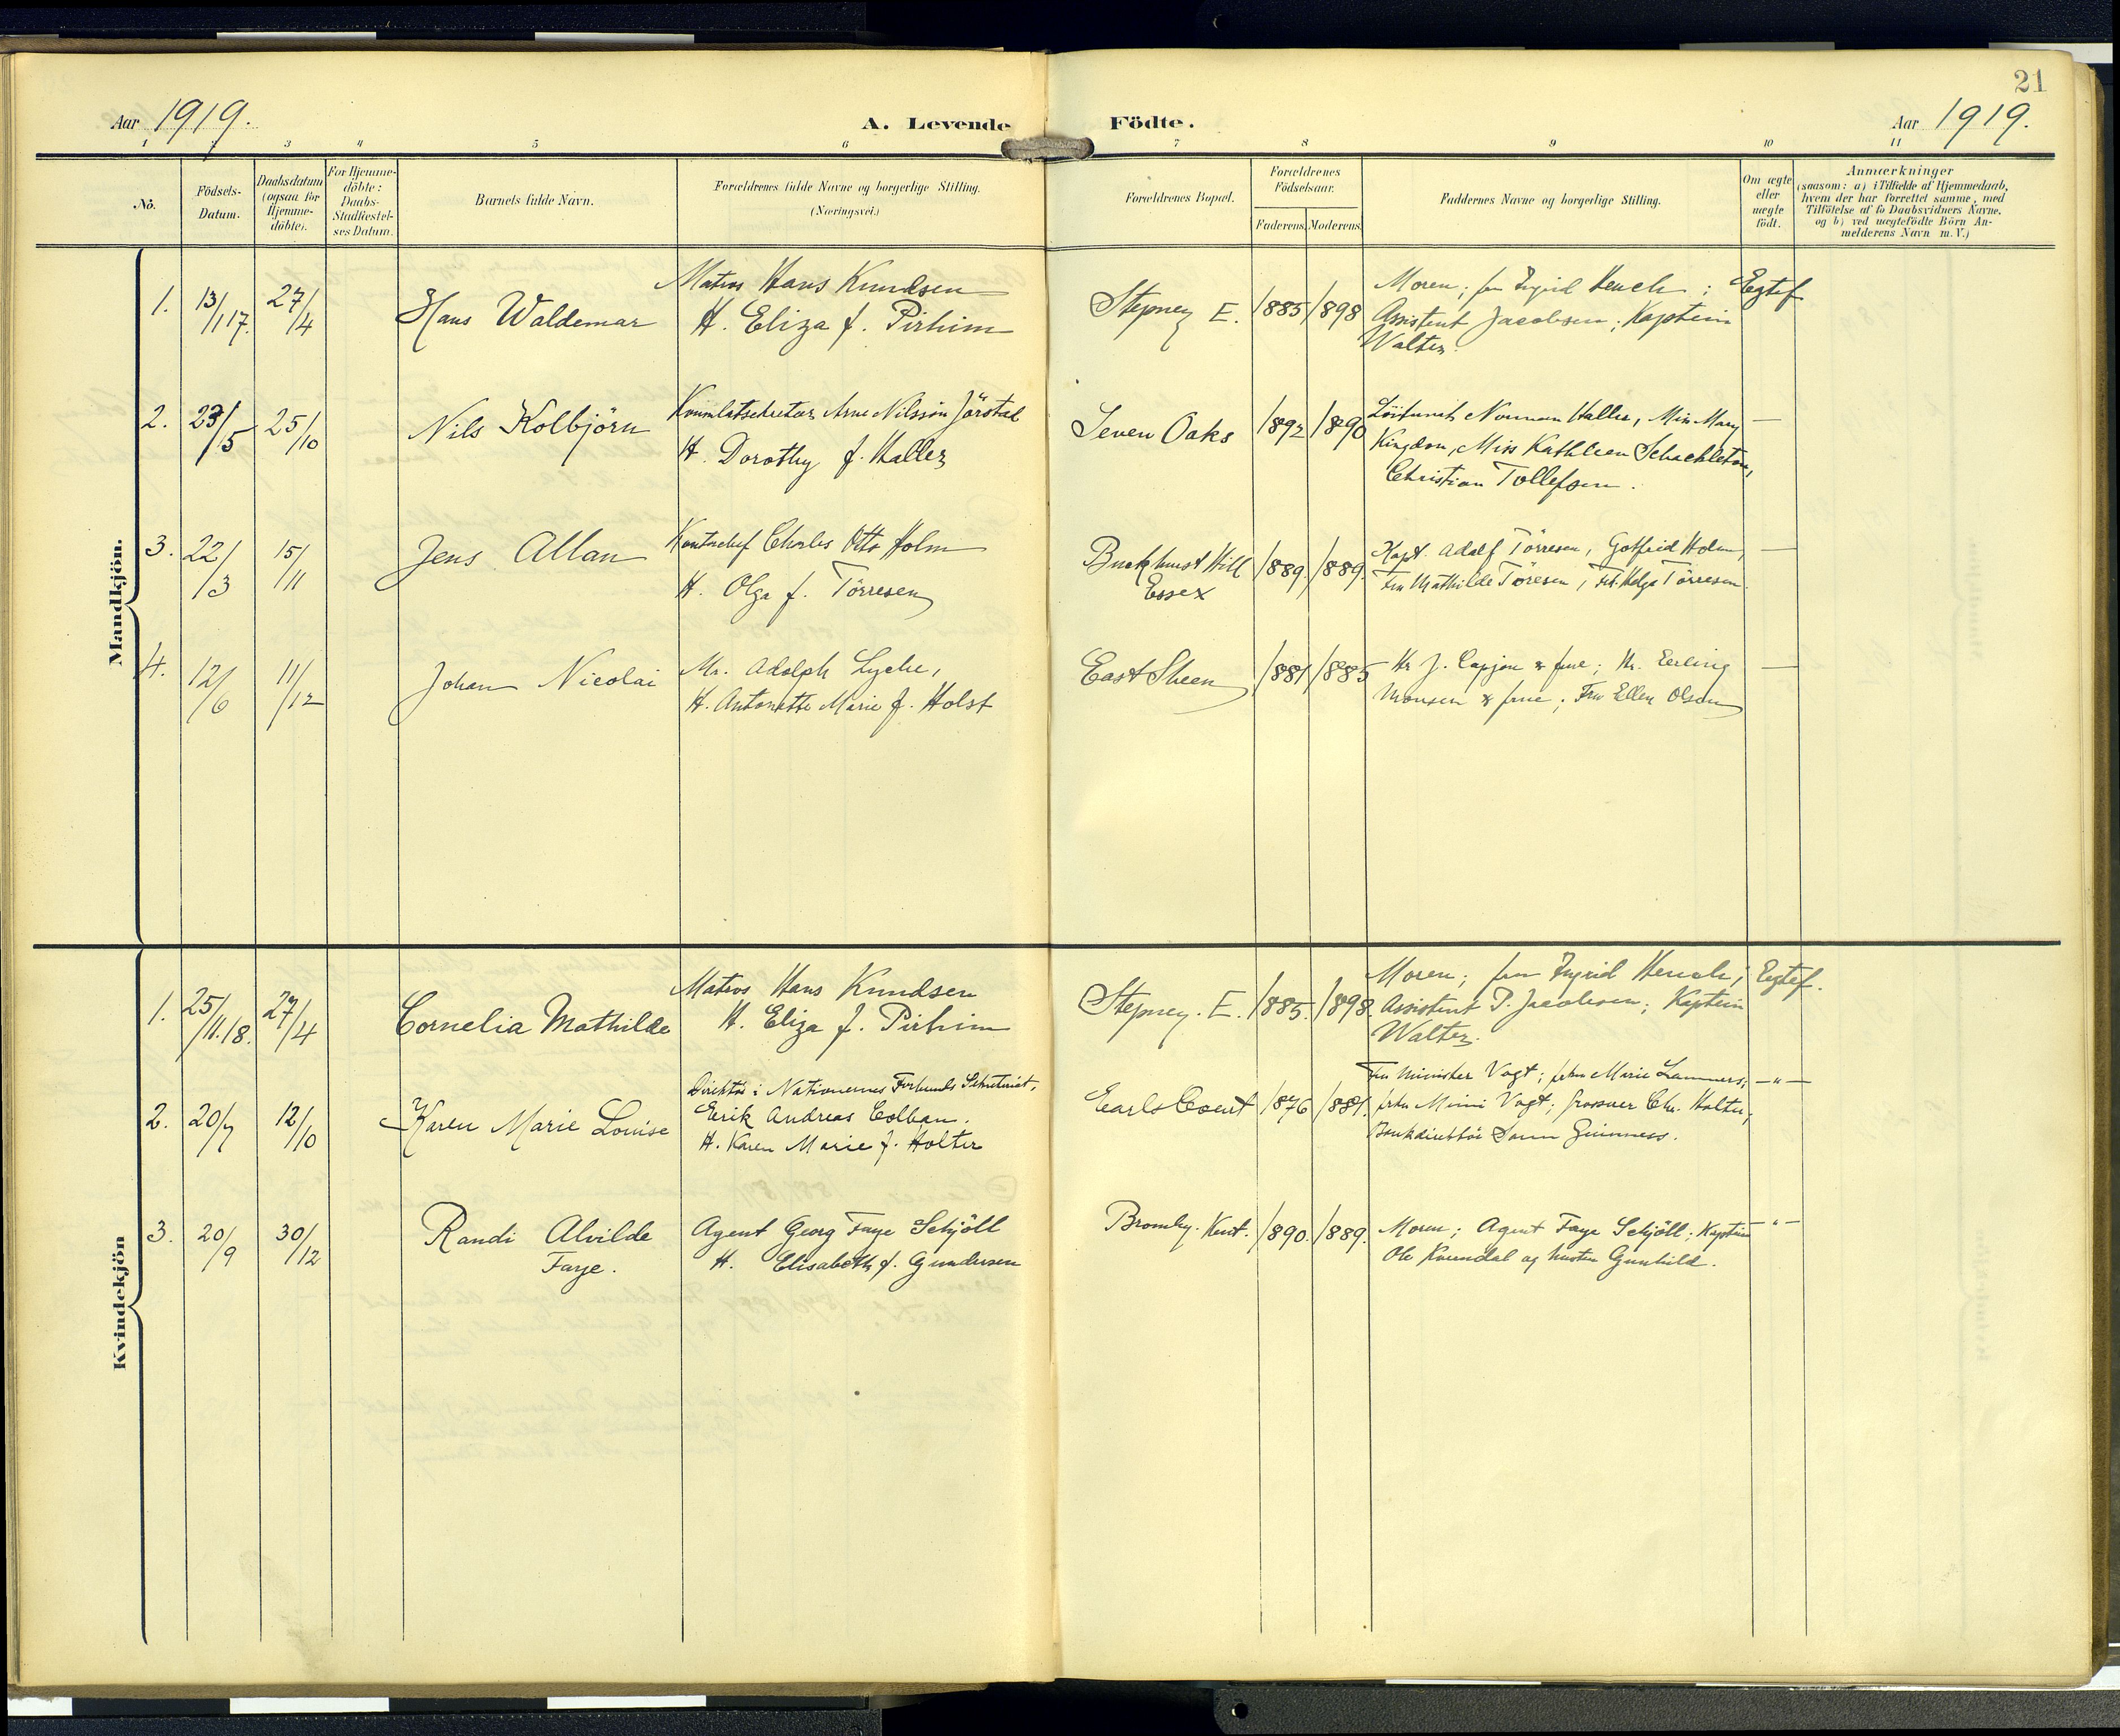 21
Aar 1919.
A. Levende Födte.
Aar 1919.
1 2 3 4 5 6 7 8 9 10 11
No.
Födsels-
Datum.
Daabsdatum
(ogsaa for
Hjemme-
döbte).
For Hjemme-
döbte:
Daabs-
Stadfæstel-
ses Datum.
Barnets fulde Navn.
Forældrenes fulde Navne og borgerlige Stilling.
(Næringsvei.)
Forældrenes Bopæl.
Forældrenes
Födselsaar.
Faderens. Moderens.
Faddernes Navne og borgerlige Stilling.
Om ægte
eller
uægte
födt.
Anmærkninger
(saasom: a) i Tilfælde af Hjemmedaab,
hvem der har forrettet samme, med
Tilföielse af to Daabsvidners Navne,
og b) ved uægtefödte Börn An-
melderens Navn m. V.)
Mandkjön.
1. 13/1 17. 27/4
Hans Waldemar
Matros Hans Knudsen
H. Eliza f. Pirhim
Stepney E. 1885 1898
Moren; fru Ingrid ; Egtef
Assistent Jacobsen; Kaptein
Walter.
2. 23/5 25/10
Nils Kolbjörn
Arne Nilssön Jörstad
H. Dorothy f. Haller
Seven Oaks 1892 1890
Löitnant Norman Haller, Miss Mary —
Kingdon, Miss Kathleen Schackleton,
Christian Tollefsen.
3. 22/3 15/11
Jens Allan
Kontorchef Charles Otto Holm
H. Olga f. Törresen
Buckhurst Hill
Essex
1889. 1889.
Kapt. Adolf Törresen, Gotfried Holm, —
Fru Mathilde Töresen, Frk. Helga Törresen
4. 12/6 11/12
Johan Nicolai
Mr. Adolph Lyche,
H. Antonette Marie f. Holst
East Sheen 1881 1885
Hr J. Capjon & frue; Hr. Erling —
Monsen & frue; Fru Ellen Olsen
Kvindekjön
1. 25/11.18. 27/4
Cornelia Mathilde
Matros Hans Knudsen
H. Eliza f. Pirhim
Stepney. E. 1885. 1898.
Moren; fru Ingrid ; Egtef.
Assistent P. Jacobsen; Kaptein
Walter.
2. 20/7 12/10
Karen Marie Louise
Direktör i Nationernes Forbunds Sekretariat,
Erik Andreas Colban.
H. Karen Marie f. Holter
Earls Court 1876 1881.
Fru Minister Vogt; frkn Marie Lammers; — " —
frkn Mimi Vogt; grosserer Chr. Holter,
Bankdirektör Guinness.
3. 20/9 30/12
Randi Alvilde
Faye.
Agent Georg Faye Schjöll
H. Elisabeth f. Gundersen
Bromley. Kent. 1890. 1889.
Moren; Agent Faye Schjöll; Kaptein - " -
Ole Kverndal og hustru Gunhild.